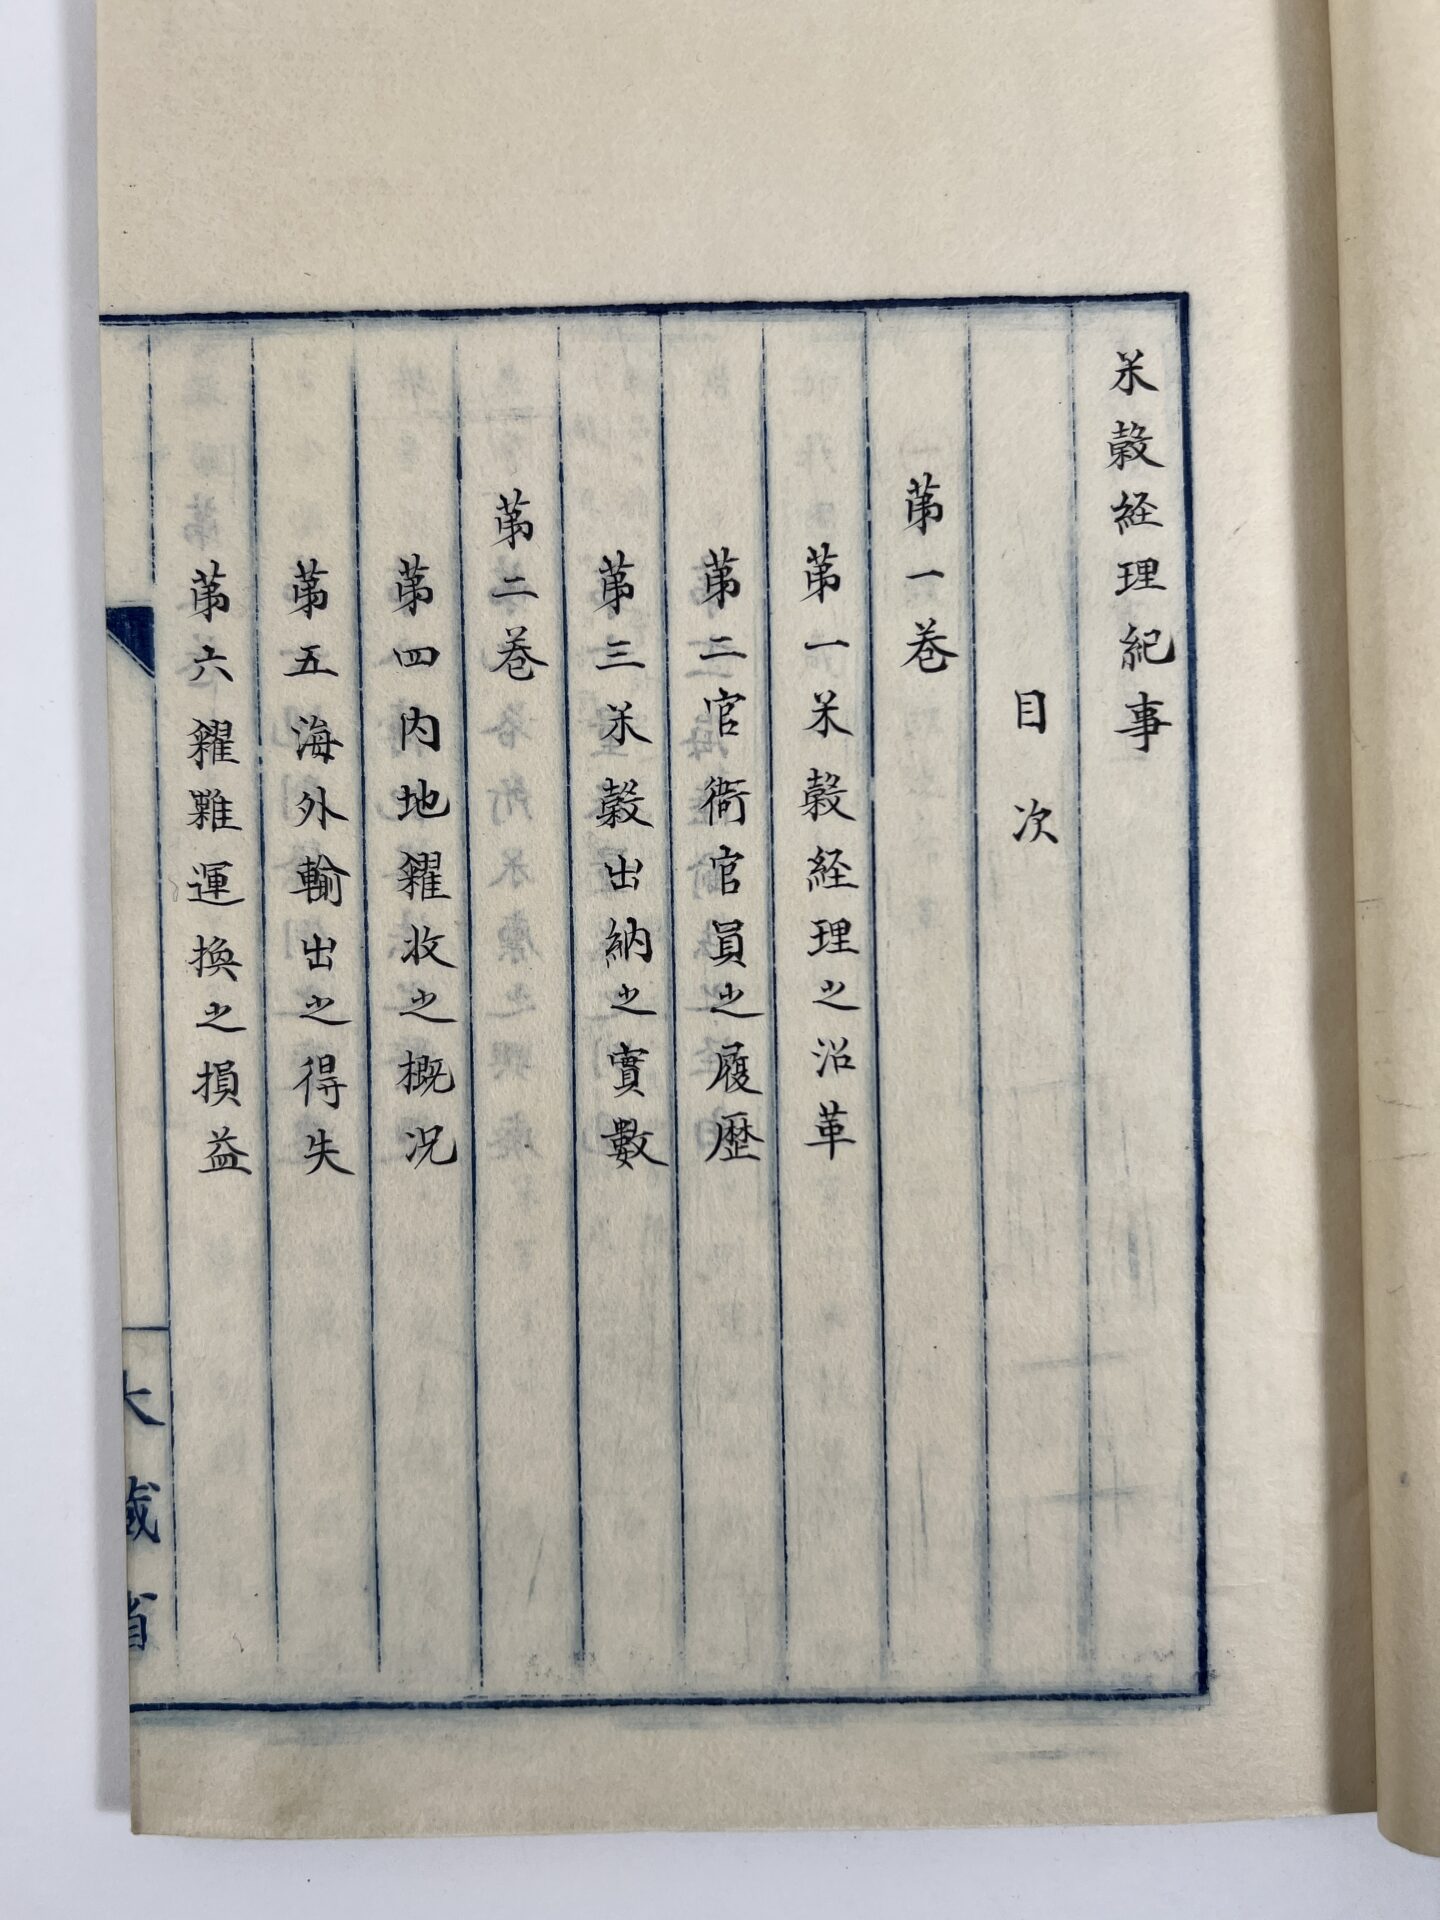 米穀経理紀事
目次
第一巻
第一米穀経理之沿革
第二官衙官員之履歴
第三米穀出納之實數
第二巻
第四内地糴収之概況
第五海外輸出之得失
第六糴難運換之損益
大蔵省